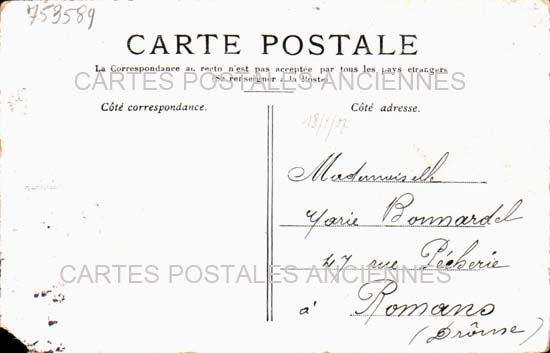 753589
CARTE POSTALE
La Correspondance au recto n'est pas acceptée par tous les pays étrangers
(Se renseigner à la Poste)
CARTES POSTALES ANCIENNES
Côté correspondance.
Côté adresse.
Mademoiselle
Marie Bonnardel
47 rue Pêcherie
CARTES POSTALES ANCIENNES
à Romans
(Drôme)